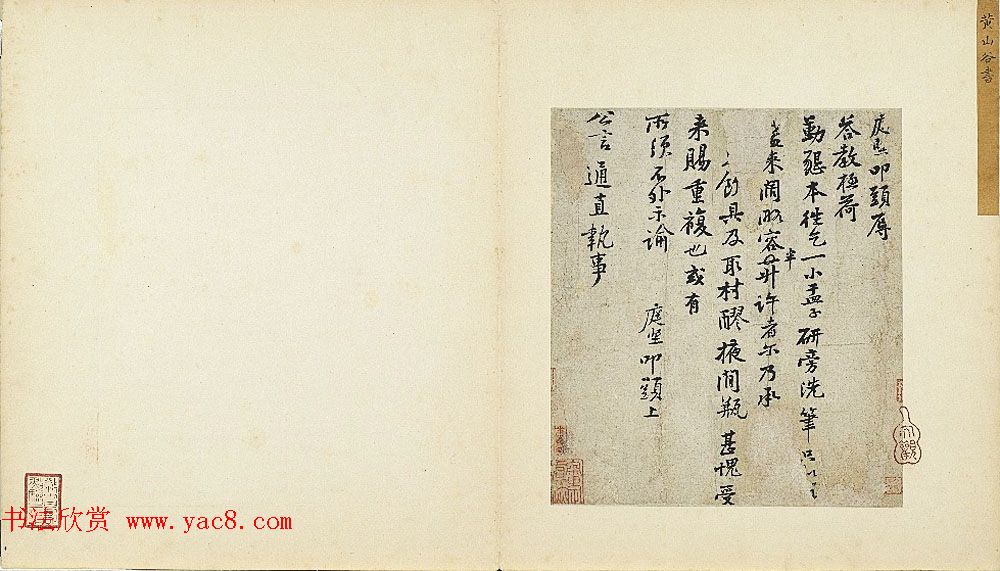 黄山谷書
庭堅叩頭辱
答教極荷
勤懇本往乞一小盂子研旁洗筆
蓋来闊略容半升許者尔乃承
創具及取材醪掖間瓶甚愧受
来賜重複也或有
所須不外示諭 庭坚叩頭上
公言通直執事
书法欣赏 www.yac8.com